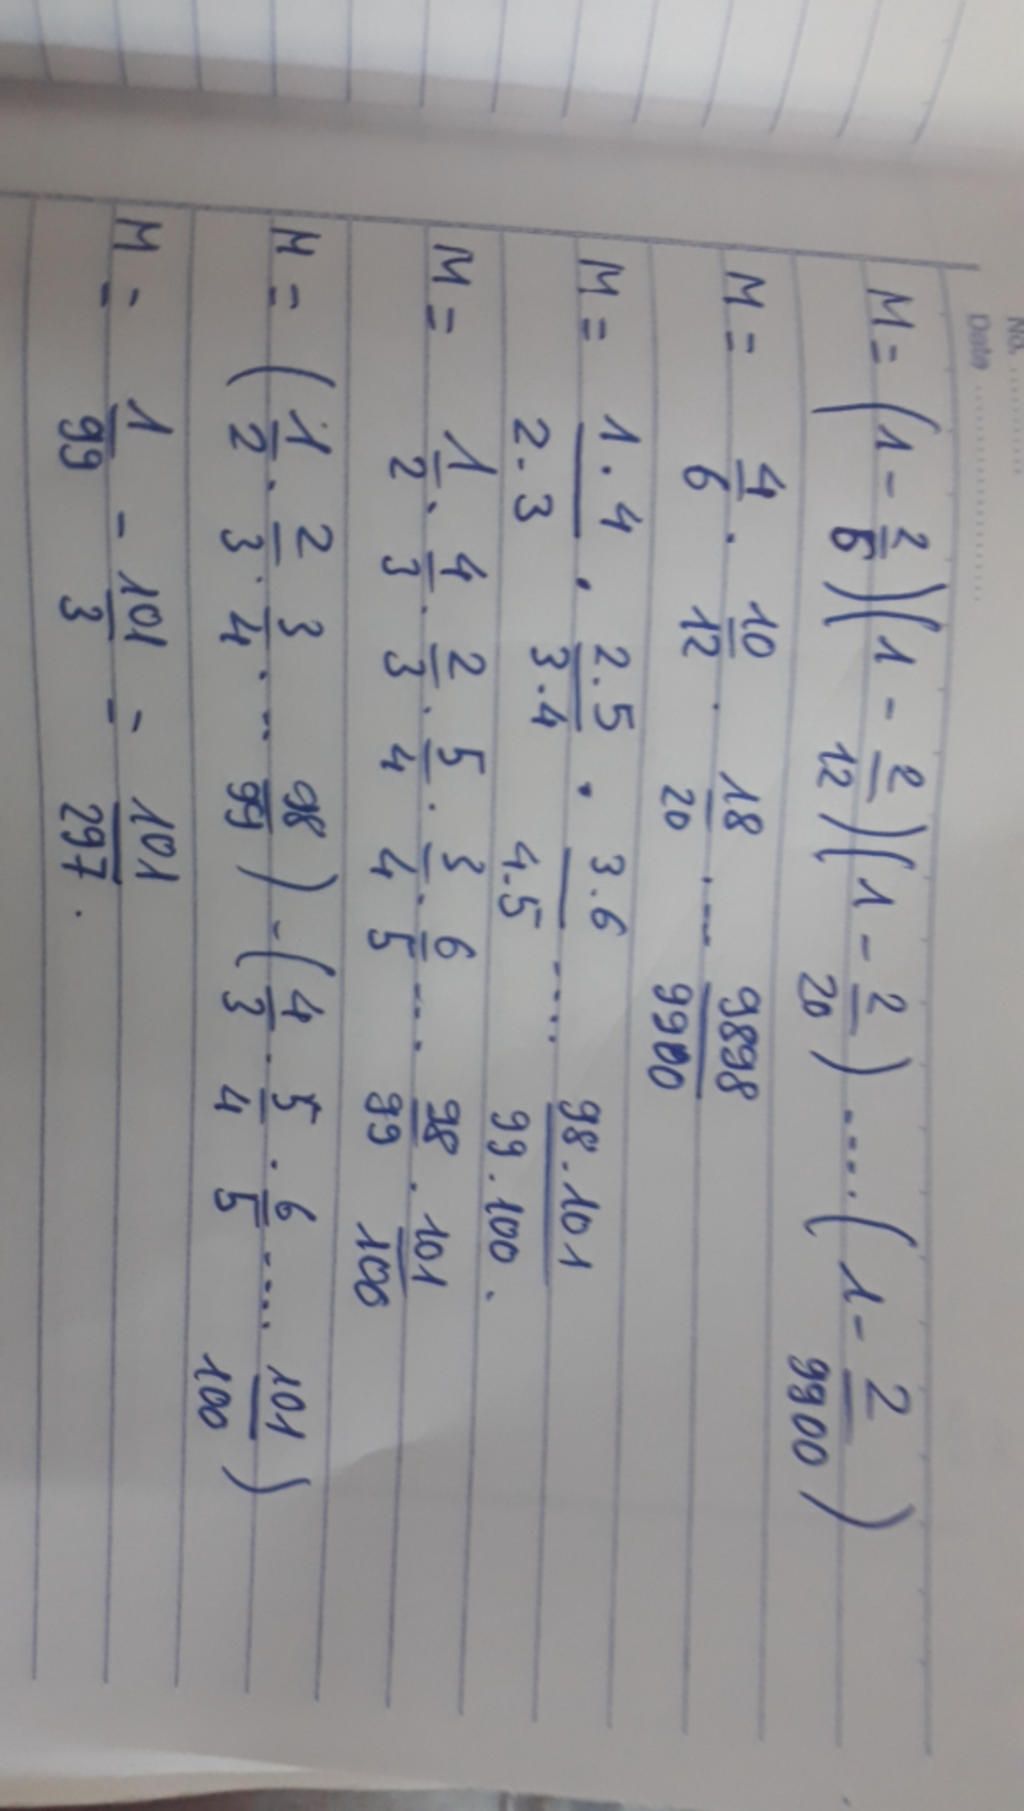 No. ............
Date ......................
M = (1 - 2/6)(1 - 2/12)(1 - 2/20) .... (1 - 2/9900)
M = 4/6 . 10/12 . 18/20 . ... 9898/9900
M = 1.4/2.3 . 2.5/3.4 . 3.6/4.5 .... 98.101/99.100.
M = 1/2 . 4/3 . 2/3 . 5/4 . 3/4 . 6/5 .... 98/99 . 101/100
M = (1/2 . 2/3 . 3/4 . ... 98/99) - (4/3 . 5/4 . 6/5 .... 101/100)
M = 1/99 - 101/3 = 101/297.